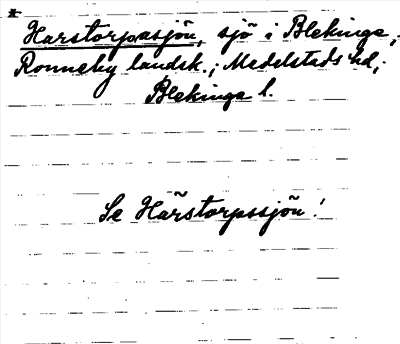 Harstorpasjön, sjö i Blekinge,
Ronneby landsk.; Medelstads hd,
Blekinge l.
Se Härstorpssjön!